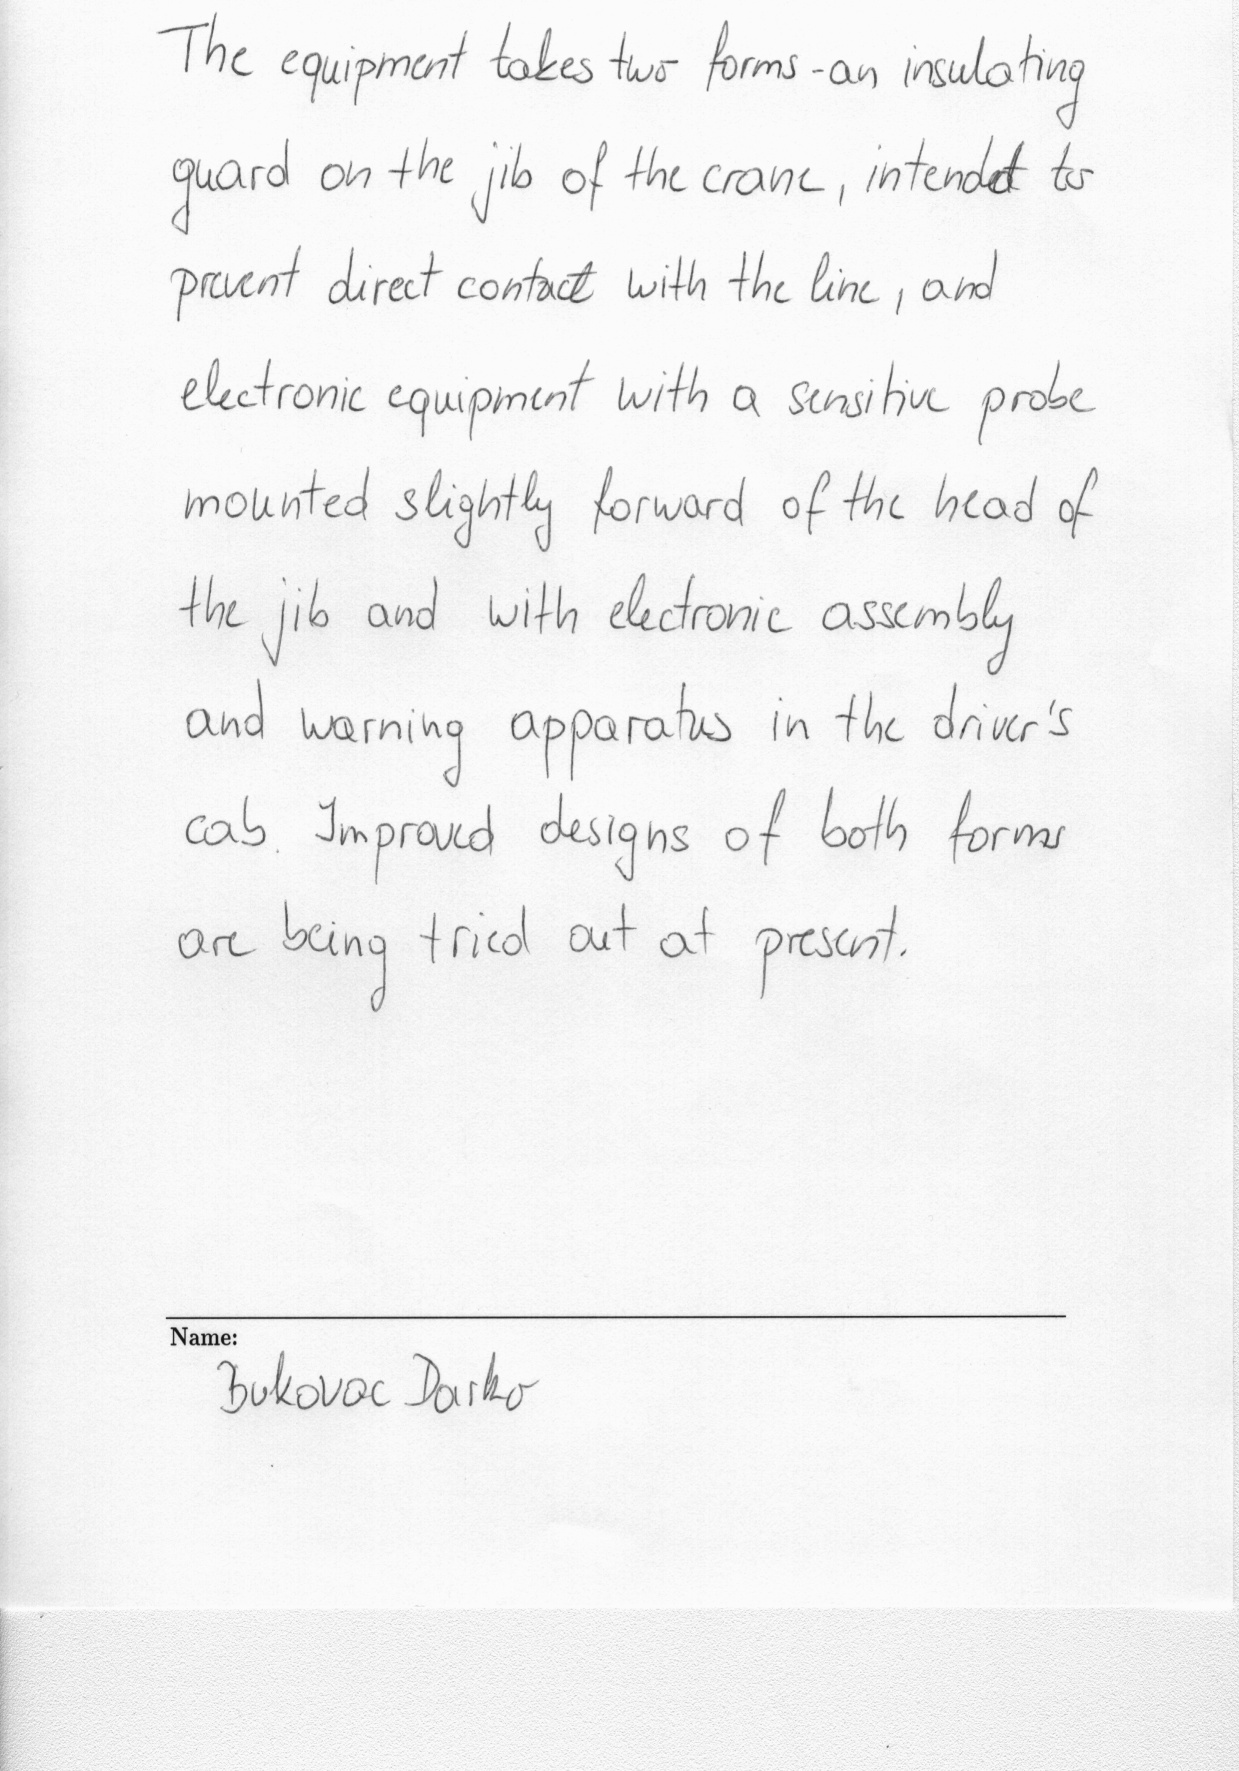 The equipment takes two forms - an insulating
guard on the jib of the crane, intended to
prevent direct contact with the line, and
electronic equipment with a sensitive probe
mounted slightly forward of the head of
the jib and with electronic assembly
and warning apparatus in the driver's
cab. Improved designs of both forms
are being tried out at present.
Name:
Bukovac Darko